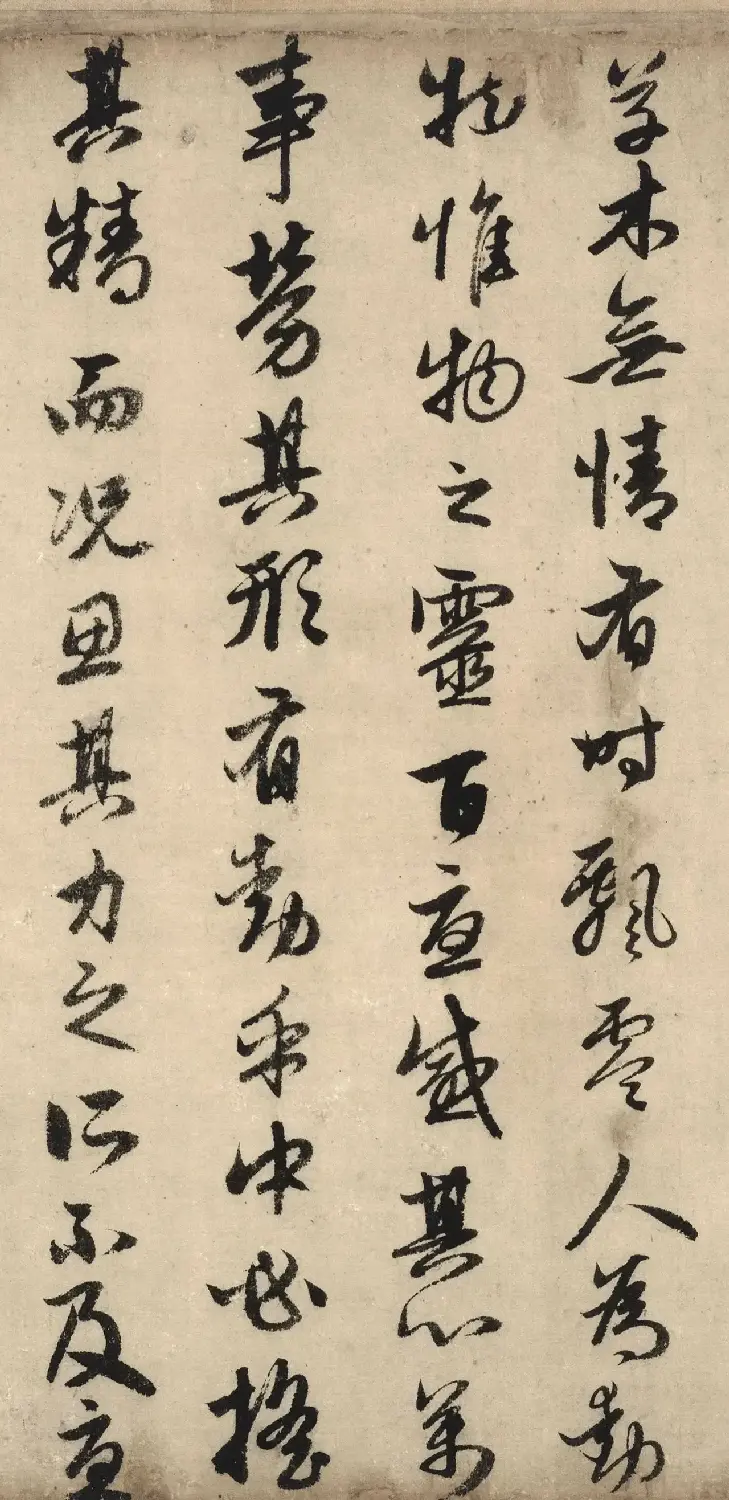 草木無情有时飄零人為動
物惟物之靈百憂感其心万
事勞其形有動乎中必搖
其精而况思其力之所不及憂